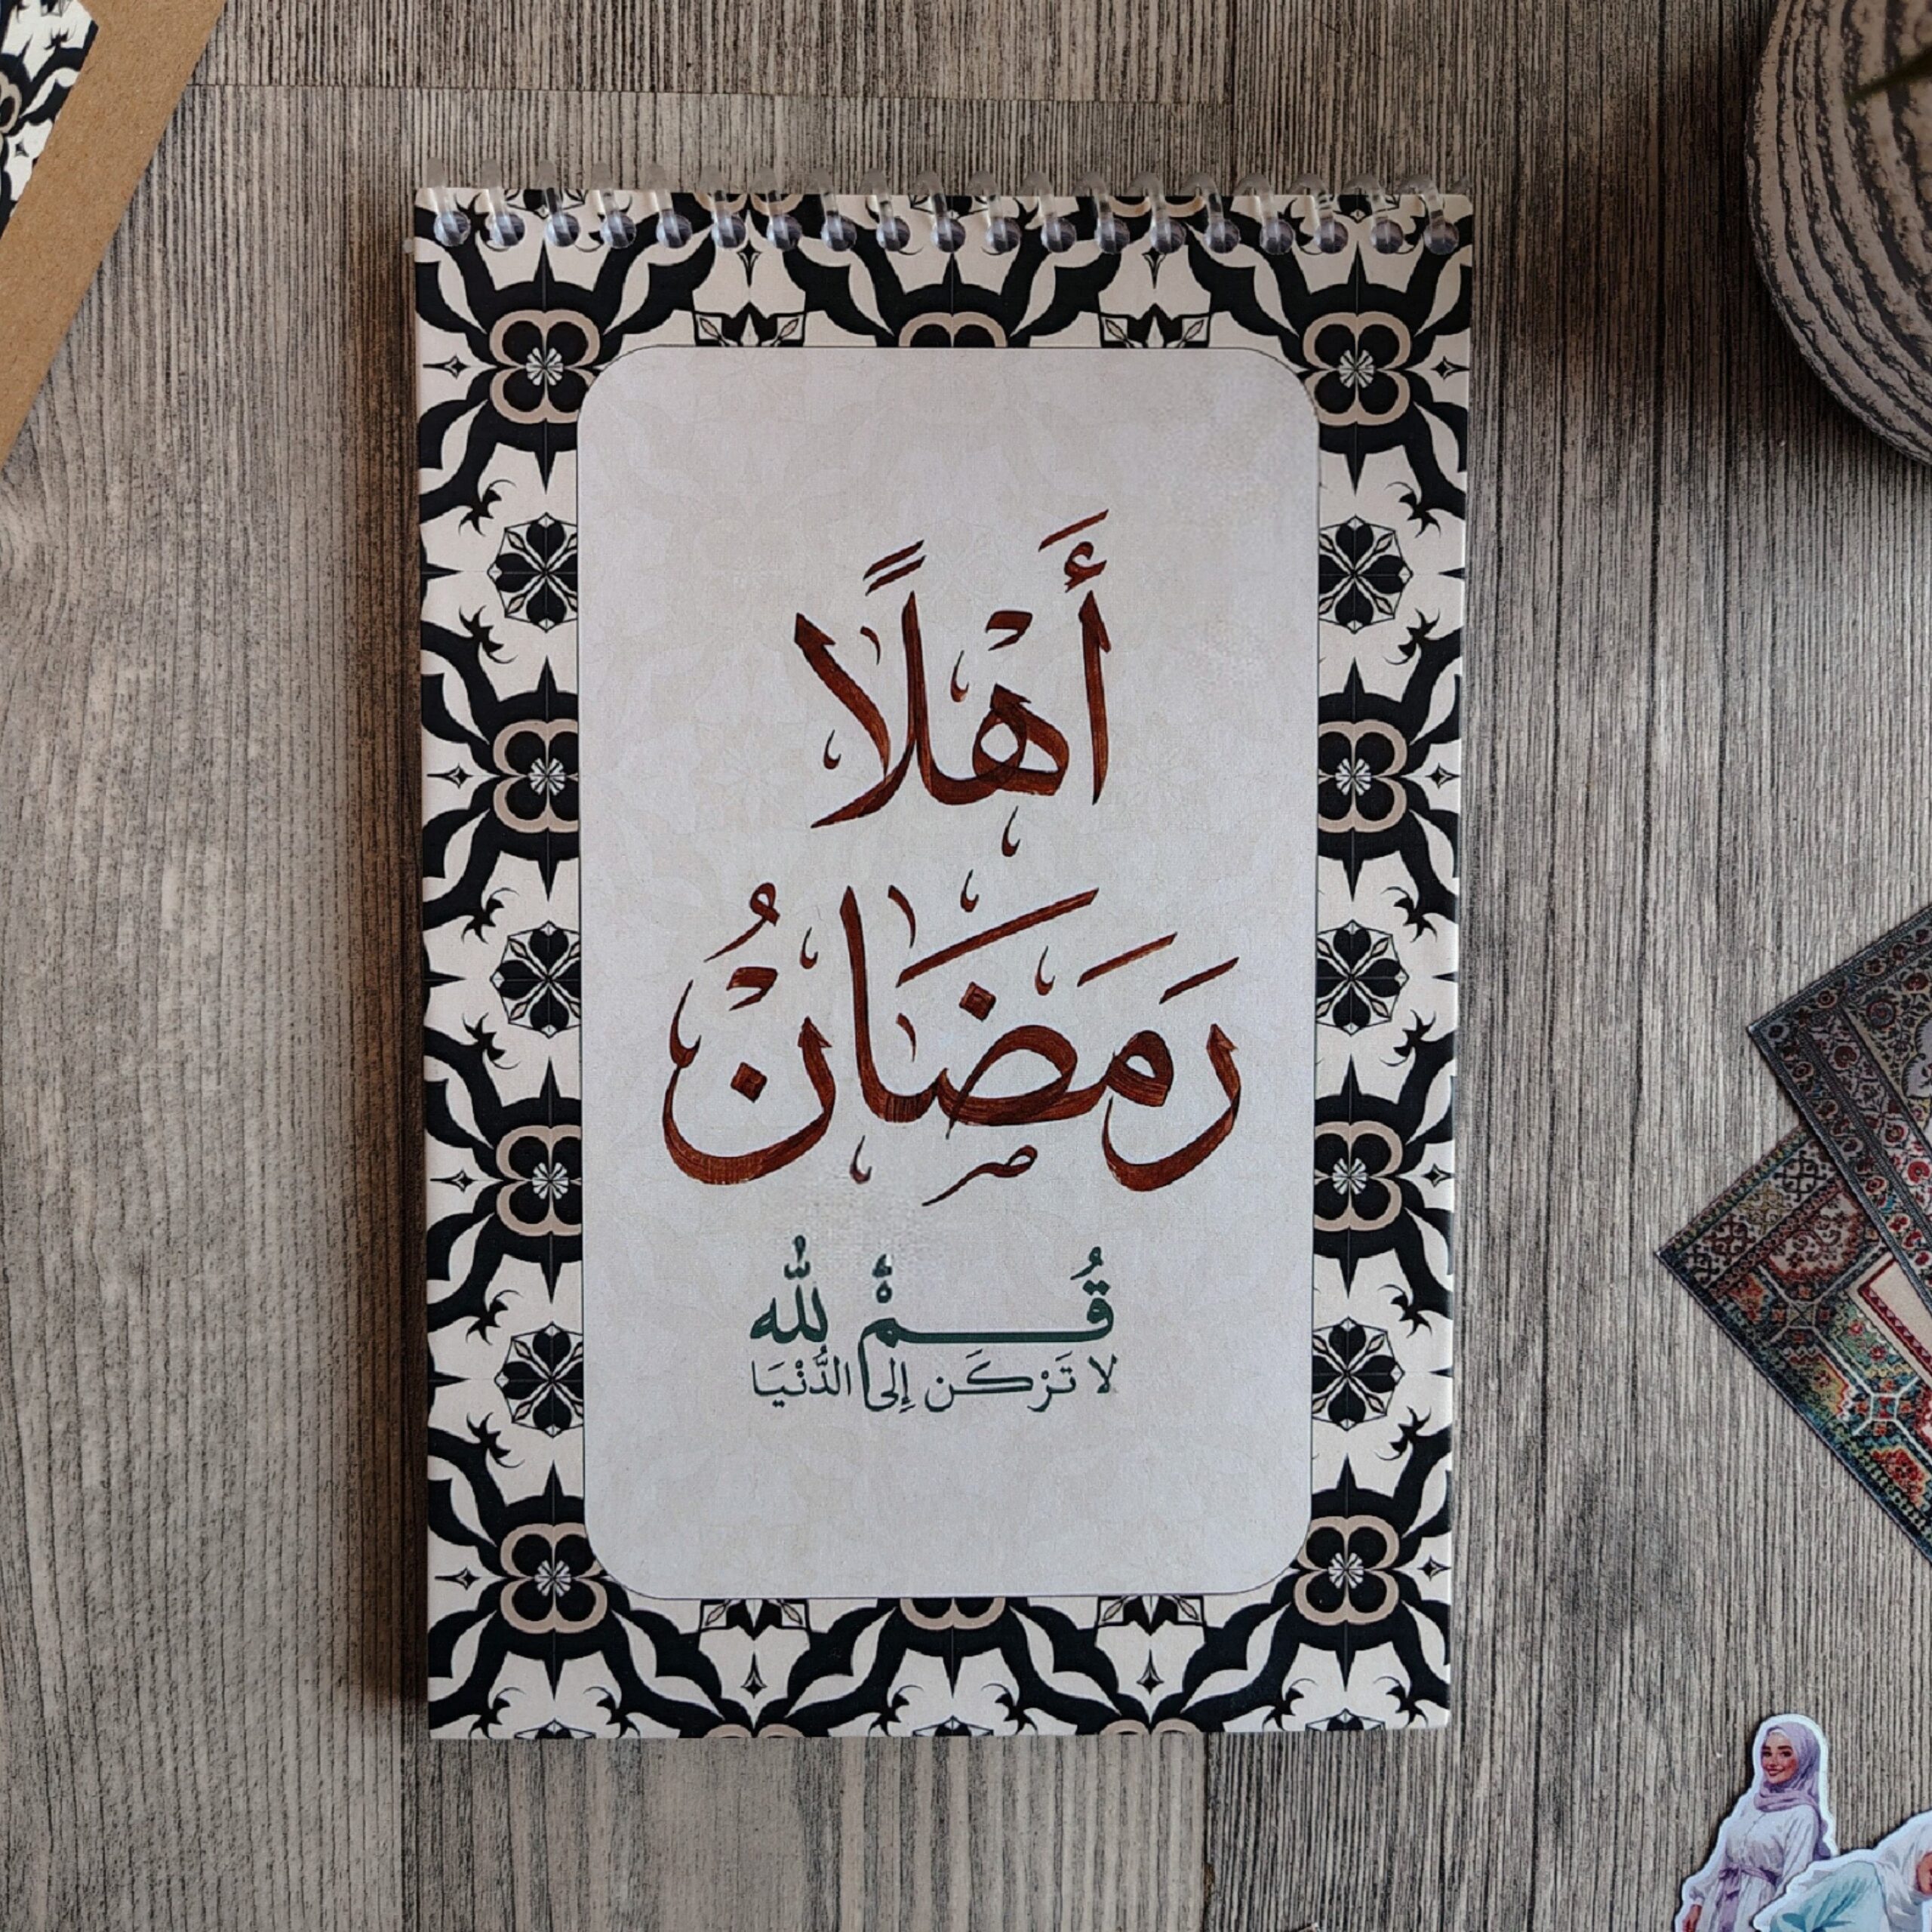 أَهْلًا
رَمَضَانُ
قُمْ لِلّٰه
لا تَرْكَن إلى الدُّنْيَا